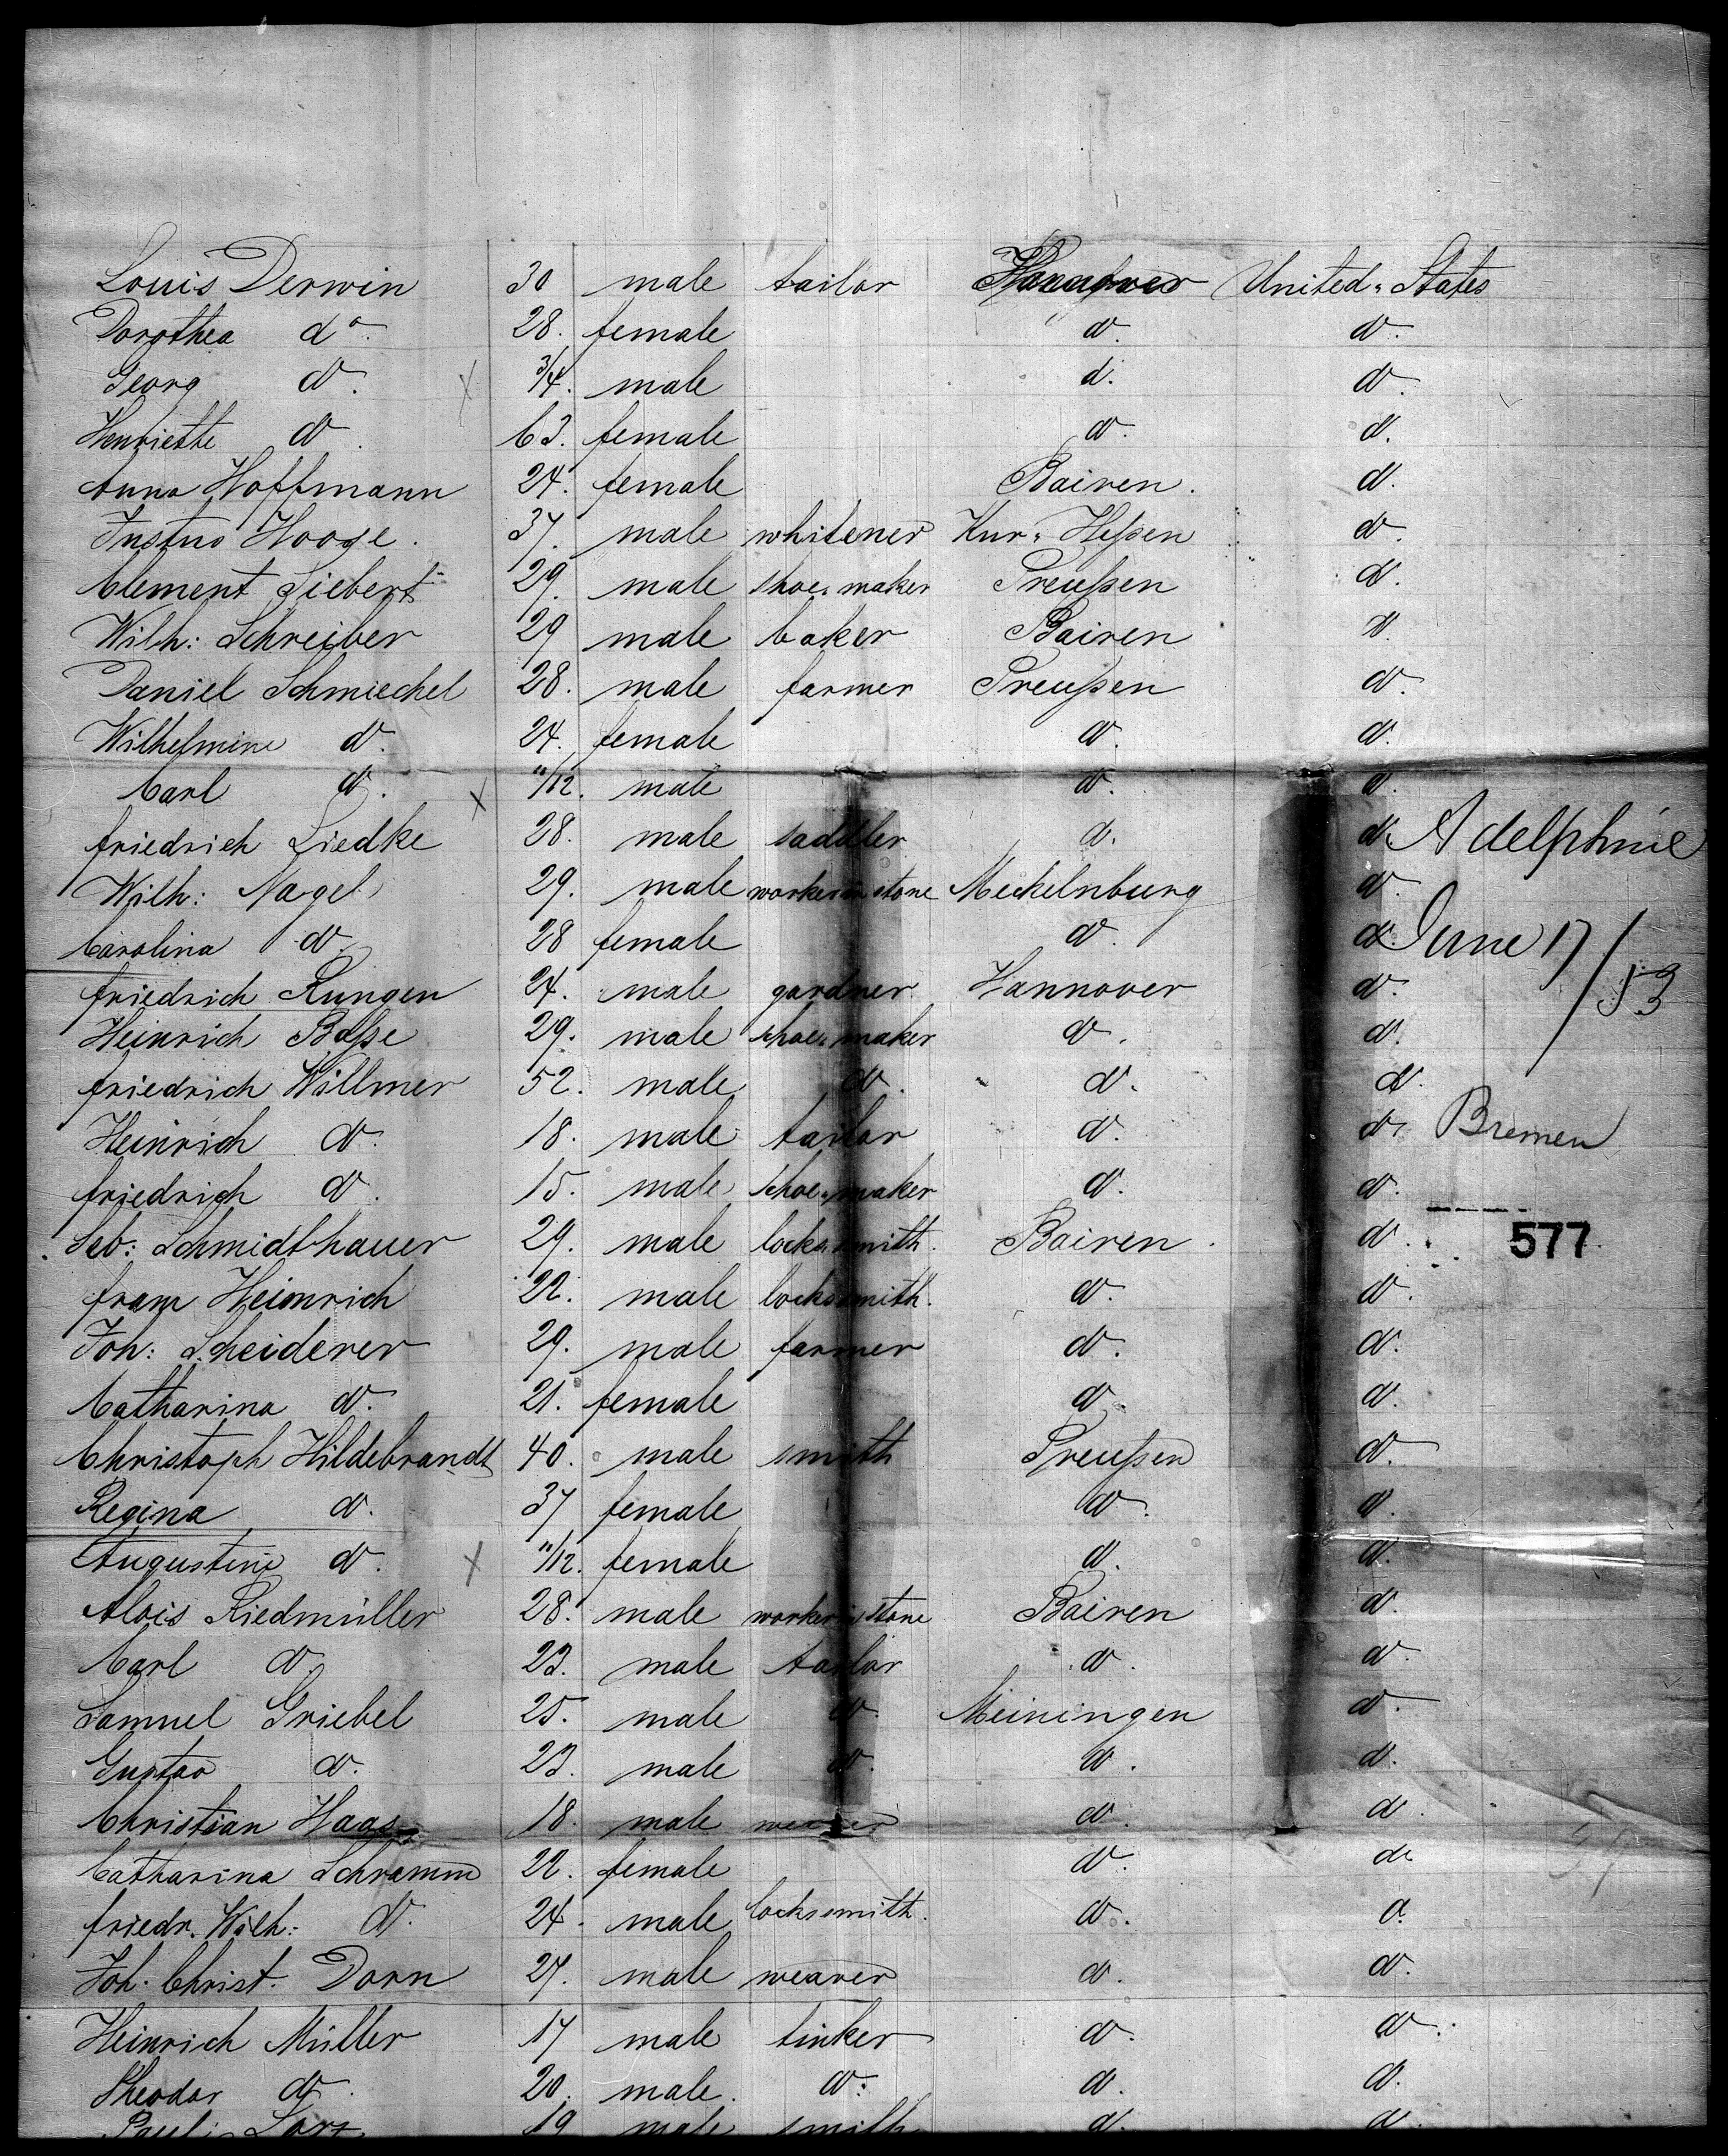 Louis Derwin 30 male tailor Hannover United States
Dorothea do 28. female do. do.
Georg do. 3/4. male d. do.
Henriette do 63. female do. d.
Anna Hoffmann 24. female Bairen. d.
Justus Hooge. 37. male whitener Kur-Heßen do.
Clement Siebert 29. male shoe-maker Preußen do.
Wilh: Schreiber 29 male baker Bairen d.
Daniel Schmiechel 28. male farmer Preußen do.
Wilhelmine do. 24. female do. do.
Carl do. 11/12. male do. do.
Friedrich Liedke 28. male saddler d. do. Adelphine
Wilh: Nagel 29. male worker in stone Meckelnburg do.
Carolina do 28 female do. do. June 17/53
Friedrich Rungen 24. male gardner Hannover do.
Heinrich Baße 29. male shoe-maker do. do.
Friedrich Willmer 52. male do. do. do.
Heinrich do. 18. male tailor do. do. Bremen
Friedrich do. 15. male shoe-maker do. do.
Seb: Schmidthauer 29. male locksmith. Bairen. do. 577
Heimrich 22. male locksmith. do. do.
Joh: Scheiderer 29. male farmer do. do.
Catharina do. 21. female do. do.
Christoph Hildebrandt 40. male smith Preußen do.
Regina do. 37 female do. do.
Augustine do. 11/12. female d. do.
Alois Riedmüller 28. male worker in stone Bairen do.
Carl do 23. male tailor do. do.
Samuel Griebel 25. male do Meiningen do.
Gustav do. 23. male do. do. do.
Christian Haas 18. male weaver do. do.
Catharina Schramm 22. female do. do
Friedr. Wilh: do. 24. male locksmith. do. do
Joh. Christ. Dorn 27. male weaver do. do.
Heinrich Müller 17 male tinker do. do.
Theodor do. 20. male. do: do. do.
Paul 19 male smith d. d.